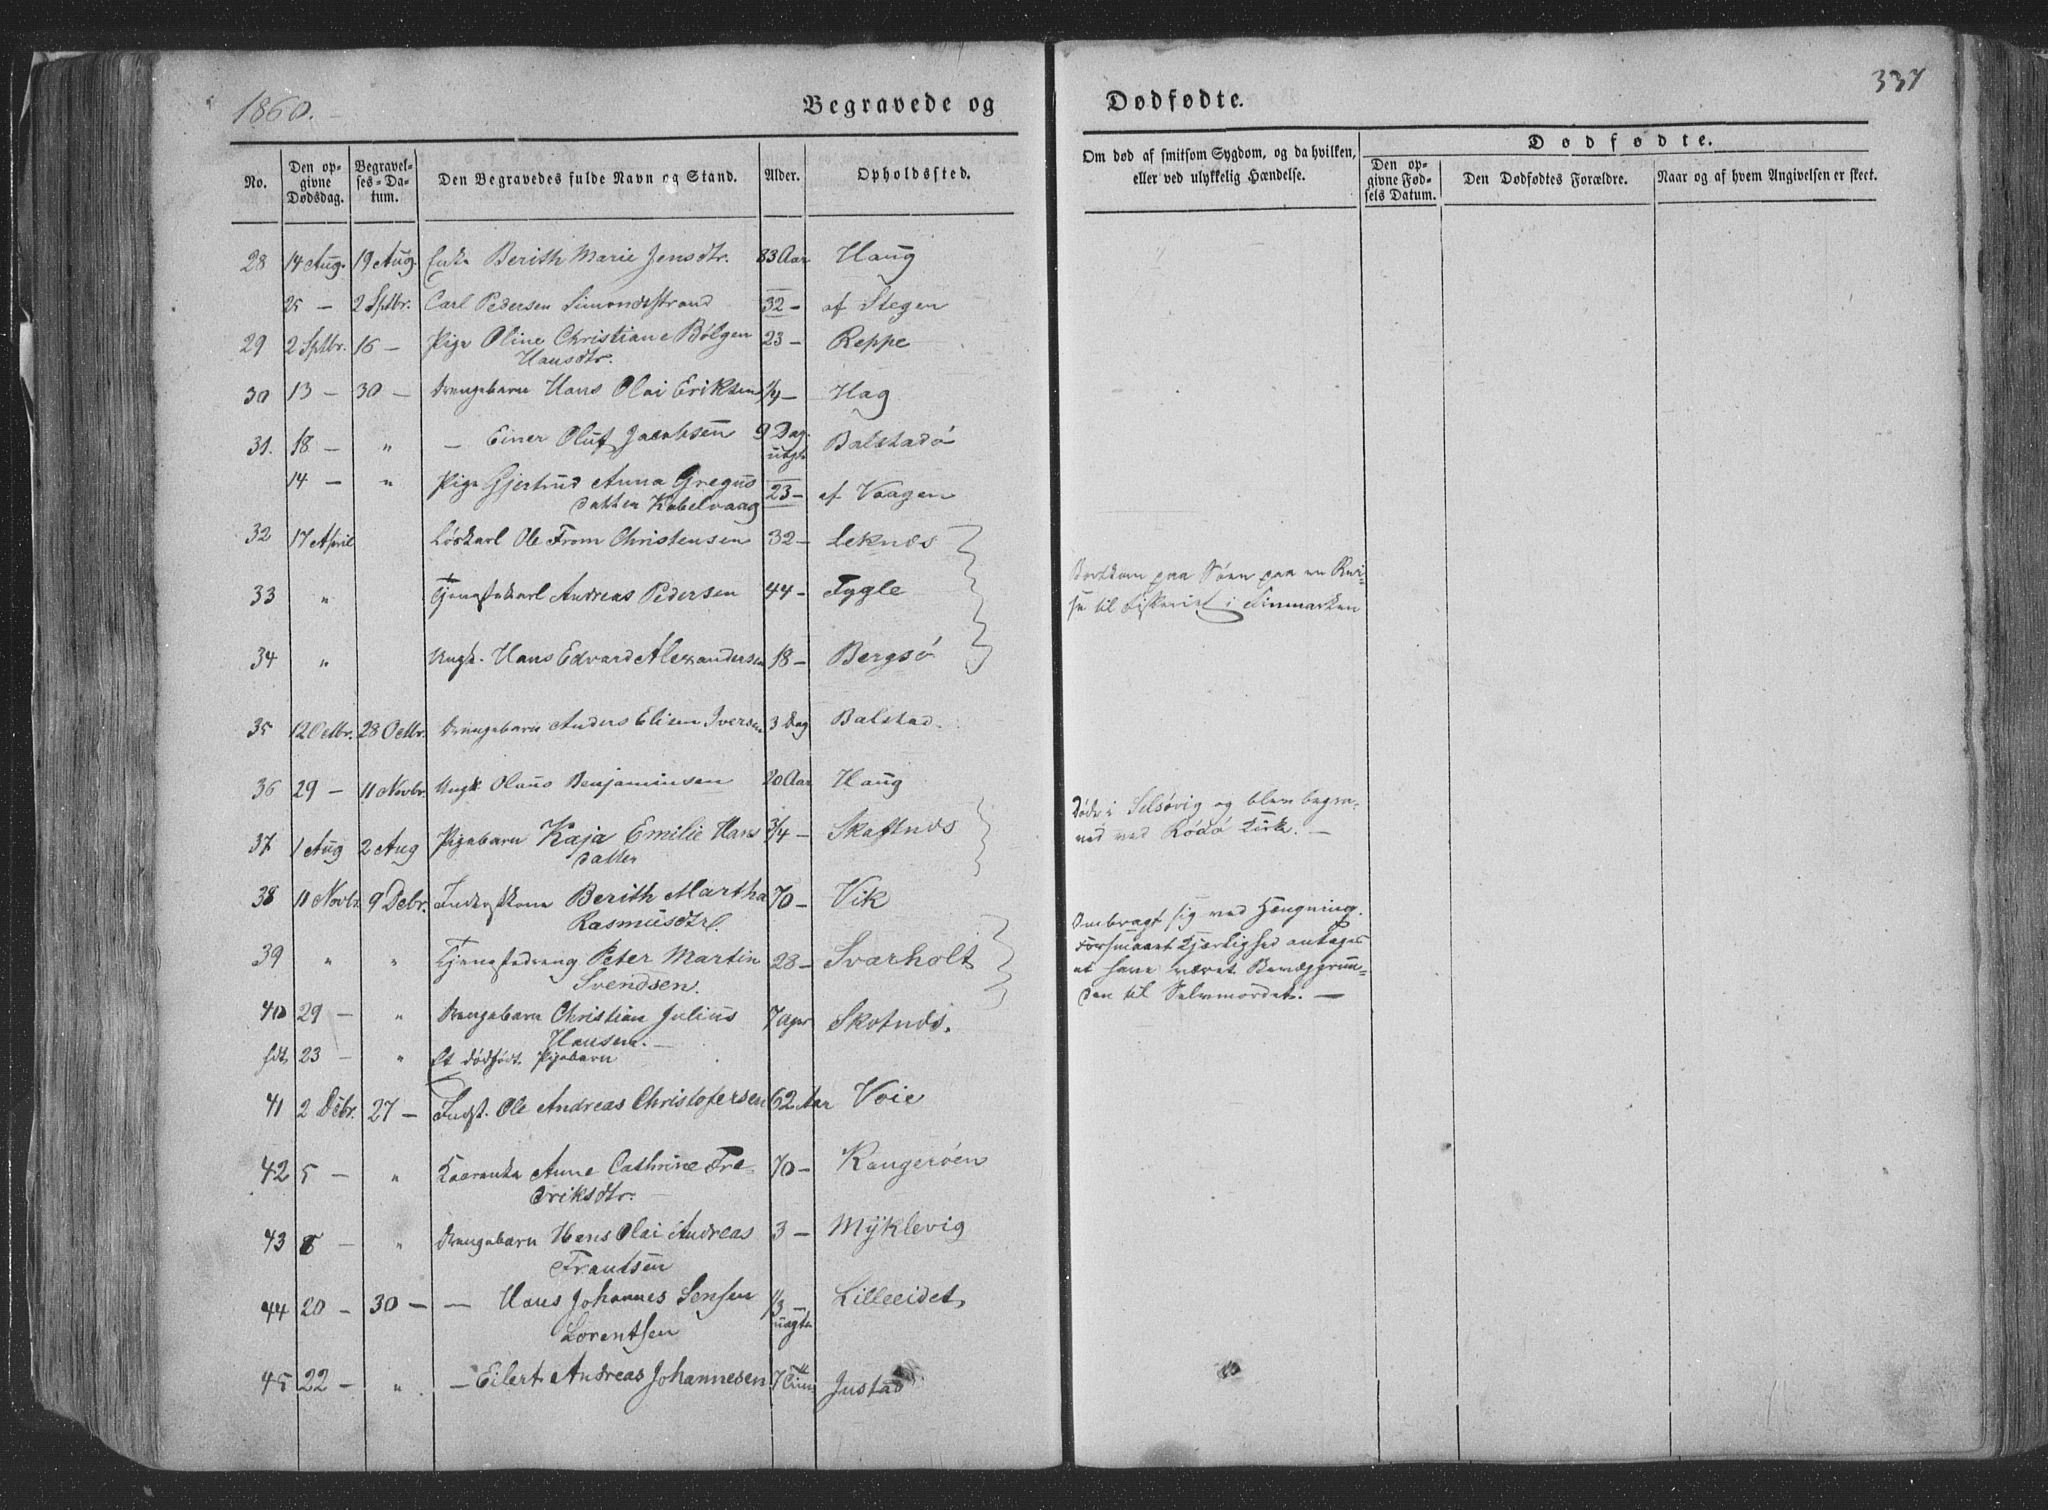 1860.
Begravede og
Dødfødte.
337
No.
Den opgivne Dødsdag.
Begravelses-Datum.
Den Begravedes fulde Navn og Stand.
Alder.
Opholdssted.
Om død af smitsom Sygdom, og da hvilken, eller ved ulykkelig Hændelse.
Dødfødte.
Den opgivne Fødsels Datum.
Den Dødfødtes Forældre.
Naar og af hvem Angivelsen er skeet.
28 14 Aug. 19 Aug. Enke Berith Marie Jensdtr. 83 Aar Haug
25 — 2 Sptbr. Carl Pedersen Simondsstrand 32 — af Stegen
29 2 Sptbr. 16 — Pige Oline Christiane Bølgen 23 — Reppe
Hansdtr.
30 13 — 30 — Drengebarn Hans Olai Eriksen 1/4 — Hag
31. 18 — " — Einer Oluf Jacobsen 9 Dag. Balstadø
uægte
14 — " Pige Gjertrud Anna Gregus 23 — af Vaagen
datter Kabelvaag
32 17 April Løskarl Ole From Christensen 32 — Leknæs
33 " Tjenestekarl Andreas Pedersen 44 — Fygle
Bortkom paa Søen paa en Rei-
se til Fiskeriet i Finmarken
34 " Ungk. Hans Edvard Alexandersen 18 — Bergsø
35 12 Octbr. 28 Octbr. Drengebarn Anders Elisen Iversen 3 Dag Balstad.
36 29 — 11 Novbr. Ungk Olaus Benjaminsen 20 Aar Haug
37 1 Aug 2 Aug Pigebarn Kaja Emilie Hans 3/4 — Skaftnæs
datter
Døde i Selsøvig og blev begra-
ved ved Rødø Kirke. —
38 11 Novbr. 9 Debr. Inderstkone Berith Martha 70 — Vik
Rasmusdtr.
39 " " Tjenestedreng Peter Martin 28 — Svarholt
Svendsen.
Ombragt sig ved Hængning.
Forsmaaet Kjærlighed antages
at have været Bevæggrun-
den til Selvmordet. —
40 29 — " Drengebarn Christian Julius 7 Skotnæs.
Hansen. —
fdt. 23 — " Et dødfødt Pigebarn
41 2 Debr. 27 — Indst. Ole Andreas Christofersen 62 Aar Voie
42 5 — " Kaarenke Anne Cathrine Fre- 70 — Rangerøen
driksdtr. —
43 8 — " Drengebarn Hans Olai Andreas 3 — Myklevig
Frantsen
44 20 — 30 — — Hans Johannes Jensen 1/3 — Lilleeidet
Lorentsen uægte
45 22 — " — Eilert Andreas Johannesen 7 Justad